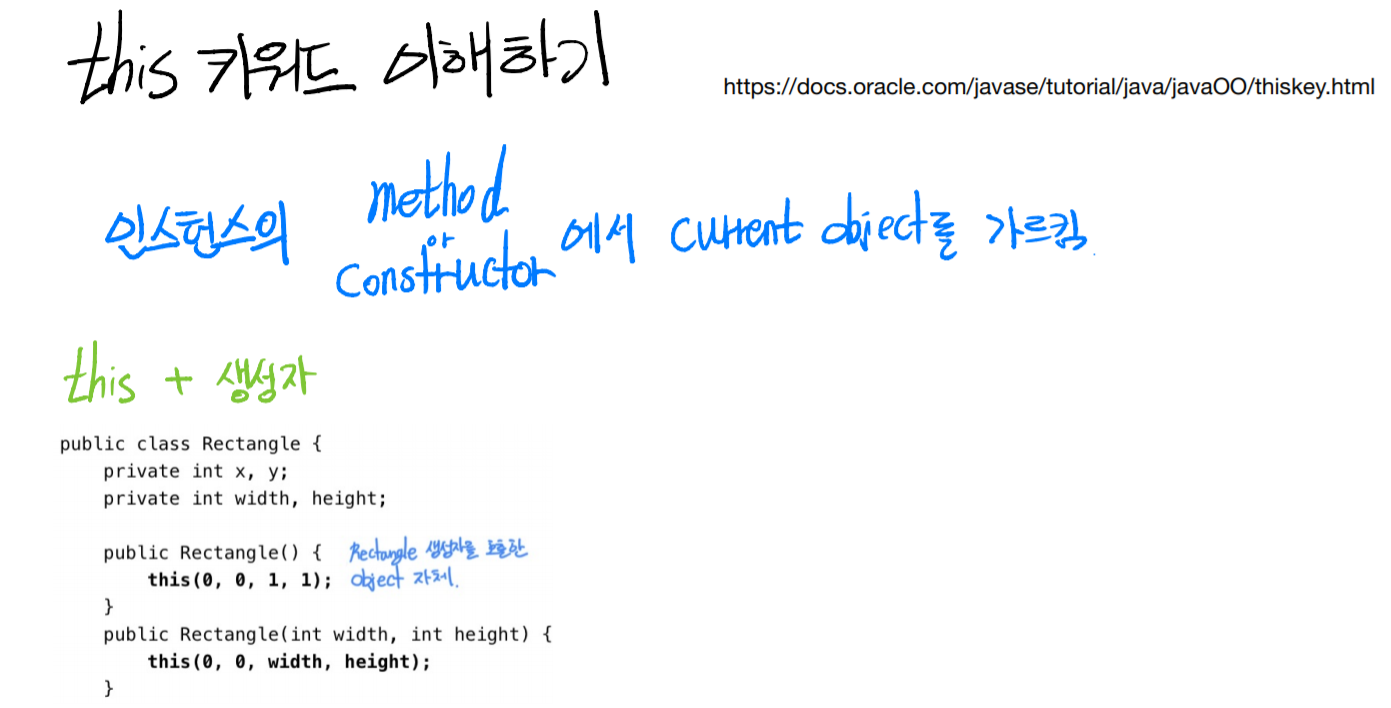 this 키워드 이해하기
https://docs.oracle.com/javase/tutorial/java/javaOO/thiskey.html
인스턴스의 method or constructor 에서 current object를 가르킴.
this + 생성자
public class Rectangle {
    private int x, y;
    private int width, height;
    public Rectangle() {
Rectangle 생성자를 호출한
        this(0, 0, 1, 1);
object 자체.
    }
    public Rectangle(int width, int height) {
        this(0, 0, width, height);
    }